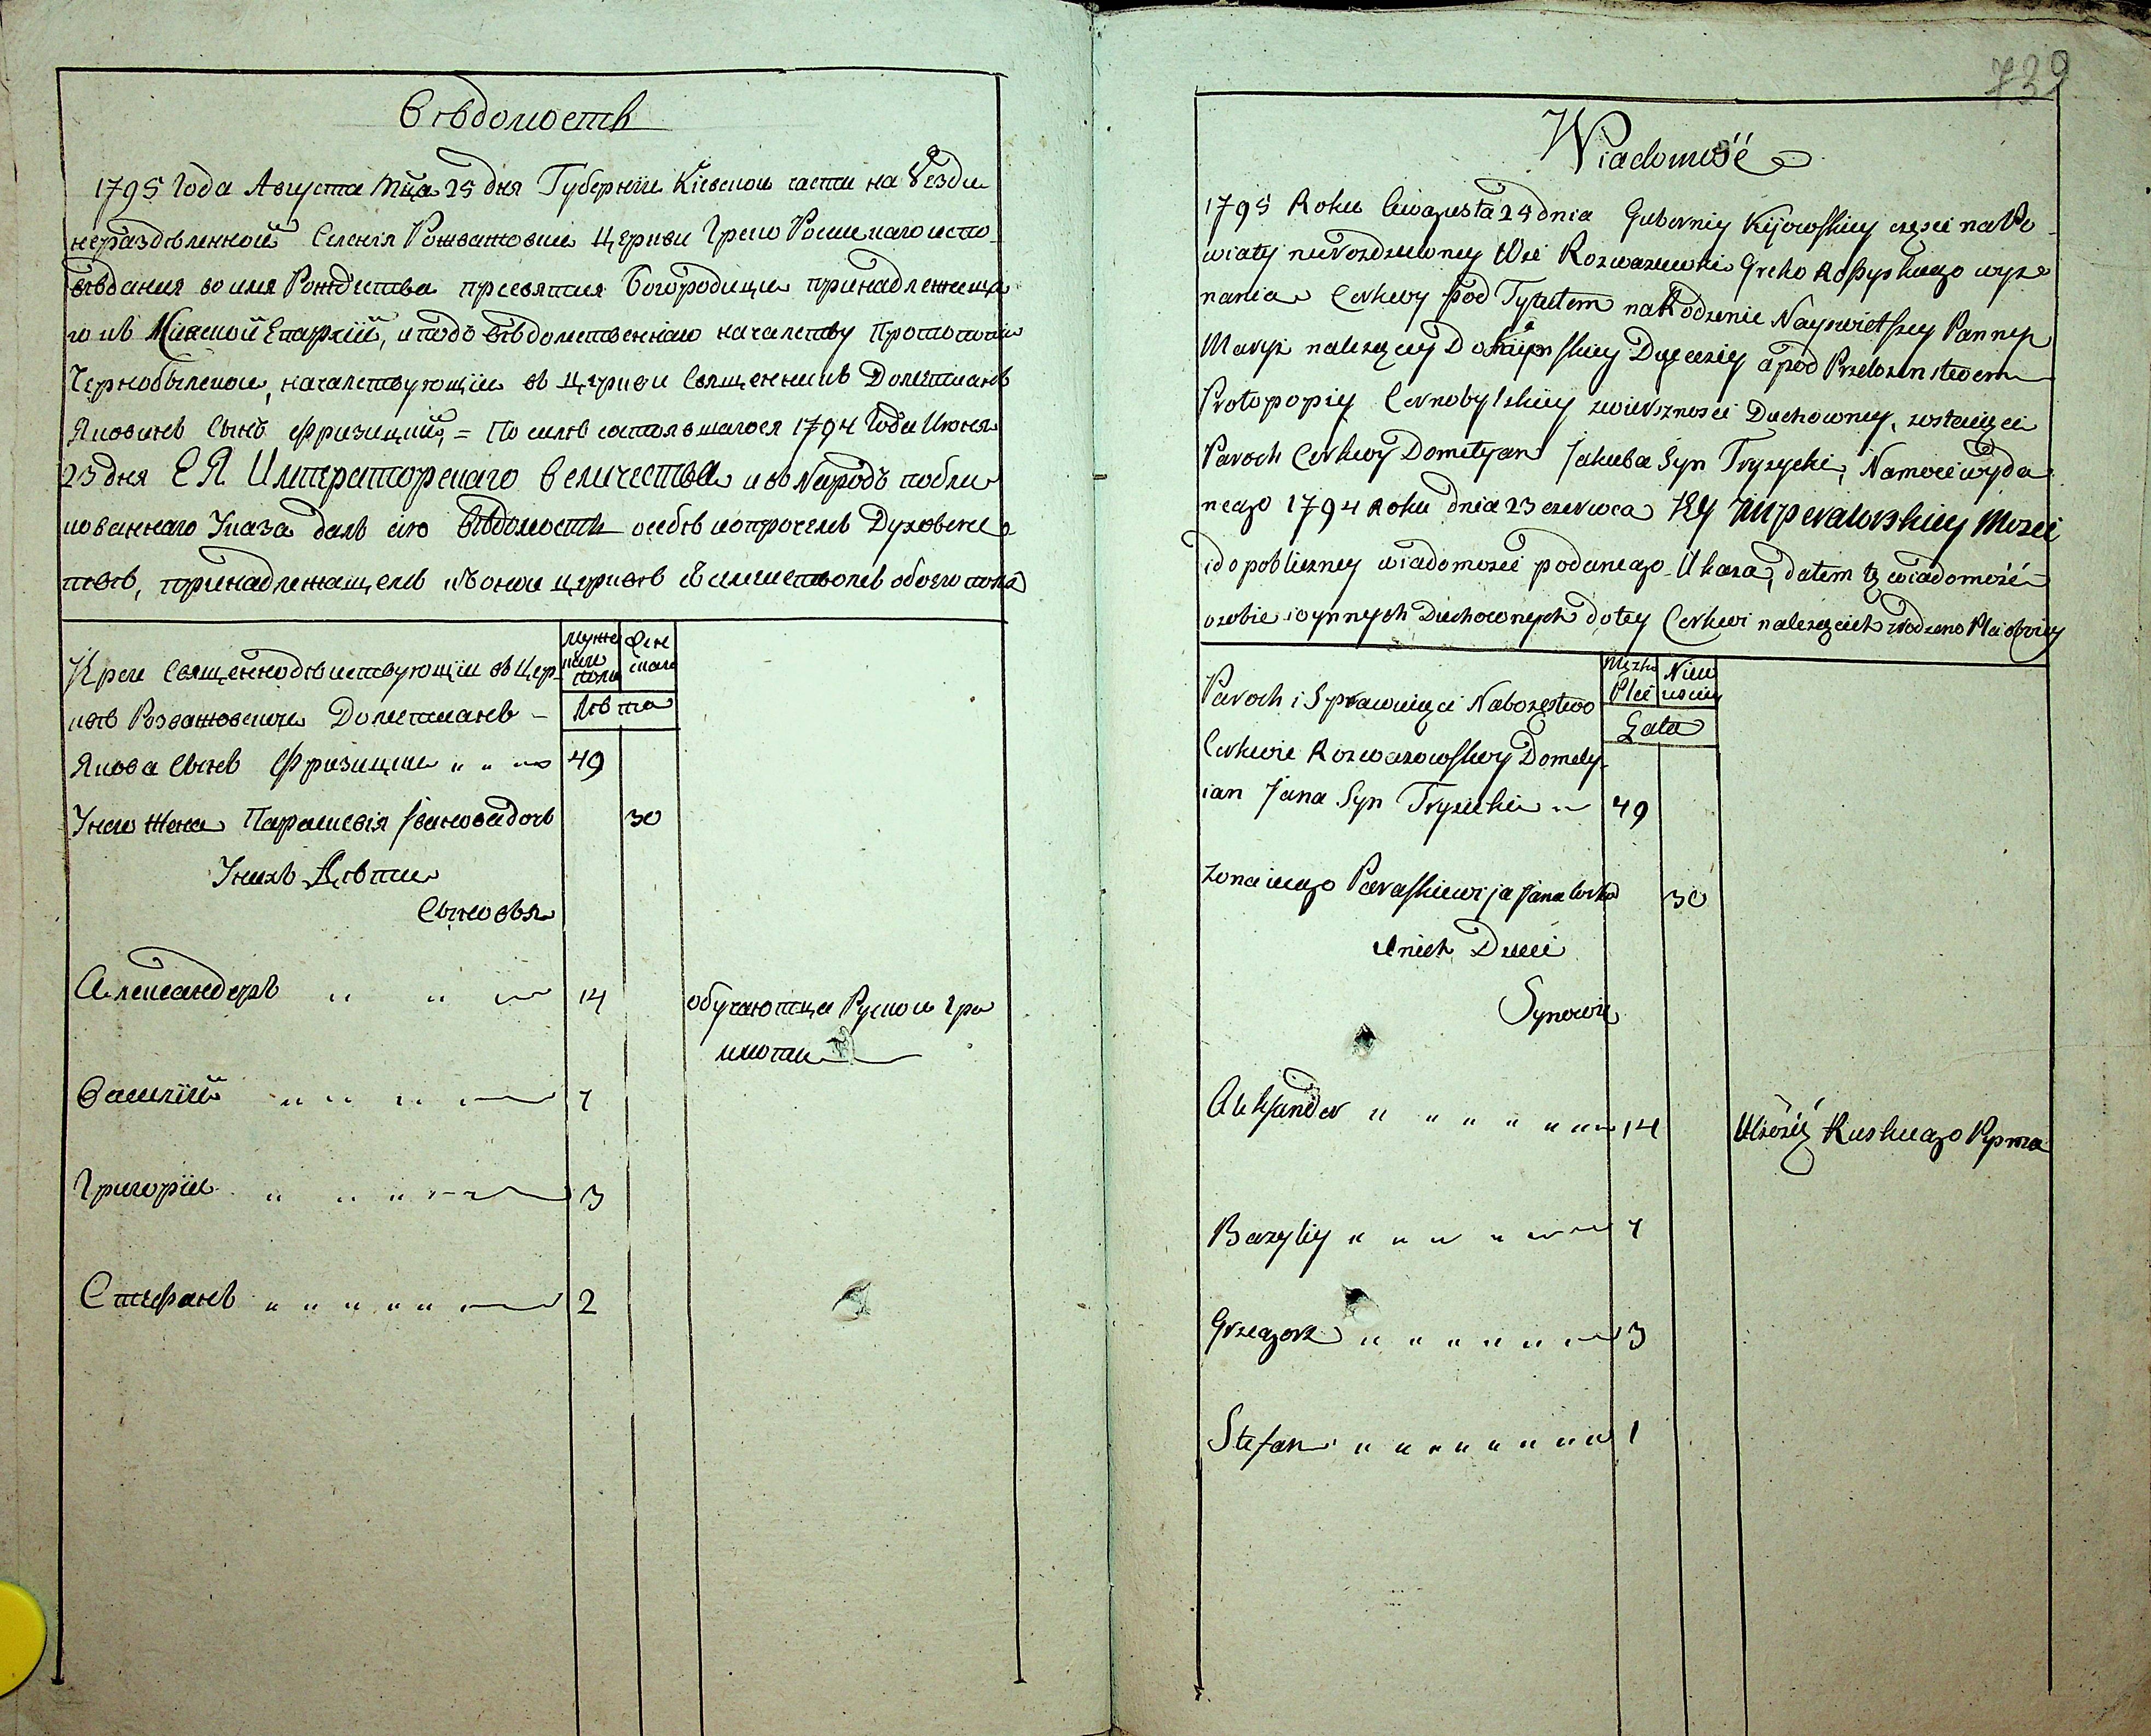 Вѣдомость
1795 Года Августа мца 25 дня Губерніи Кіевской части на Уезди
нераздѣленной Селенія Рожважовки Церкви Греко Россискаго испо-
вѣдания во имя Рождества пресвятия Богородици принадлежаща
го къ Минской Епархіи, и подъ вѣдомственнаго началству Протопопіи
Чернобылской, началствующіи въ церкви Священникъ Дометианъ
Яковинъ Сынъ Фризицкий, = По силѣ состоявшагося 1794 Года Июня
23 дня ЕЯ Императорскаго Величества и въ Народъ публи
кованнаго Указа далъ сию Вѣдомость о себѣ и о прочемъ Духовенс
твѣ, принадлежащемъ къ оной церквѣ съ симействомъ обоего пола
При Священнодѣйствующіи въ Цер-
квѣ Розважовской Дометианъ -
Якова Сынъ Фризицкии
49
мужеска пола
Женска
Лѣта
У него Жена Параскевія Іванова дочь
30
У нихъ Дѣти
Сыновья
Александеръ 14 обучаютца Руской гра
моти
Василій 7
Григорій 3
Стефанъ 2
739
Wiadomość
1795 Roku Awgusta 25 dnia Gubernij Kijowskiey częsci na Po-
wiaty nierozdzieloney Wsi Rozwazewki Greko Rossyyskiego wyz
nania Cerkwy pod Tytułem na Rodzenie Nayswietszey Panny
Maryi nalezącey Do Mińskiey Dyecezij a pod Przełozenstwem
Protopopiy Cernobylskiey zwierznosci Duchowney, zostaiący
Paroch Cerkwy Dometyan Jakuba Syn Tryzycki, Namoci wyda
nego 1794 Roku dnia 23 czerwca JEy Imperatorskiey Mosci
i do publiczney wiadomosci podanego Ukaza, dałem tę wiadomość
o sobie i o ynnych Duchownych do tey Cerkwi nalezących z rodzeno Płci obojey
Paroch i Sprawuiący Nabozęstwo
Męzka Płci
Niewiesciey
Lata
Cerkwie Rozwazowskiey Domety-
ian Jana Syn Tryzicki 49
zona iego Paraskiewija Jana Corka 30
U nich Dzieci
Synowie
Aleksander 14 Uczący Ruskiego Pisma
Bazyliy 7
Grzegorz 3
Stefan 1